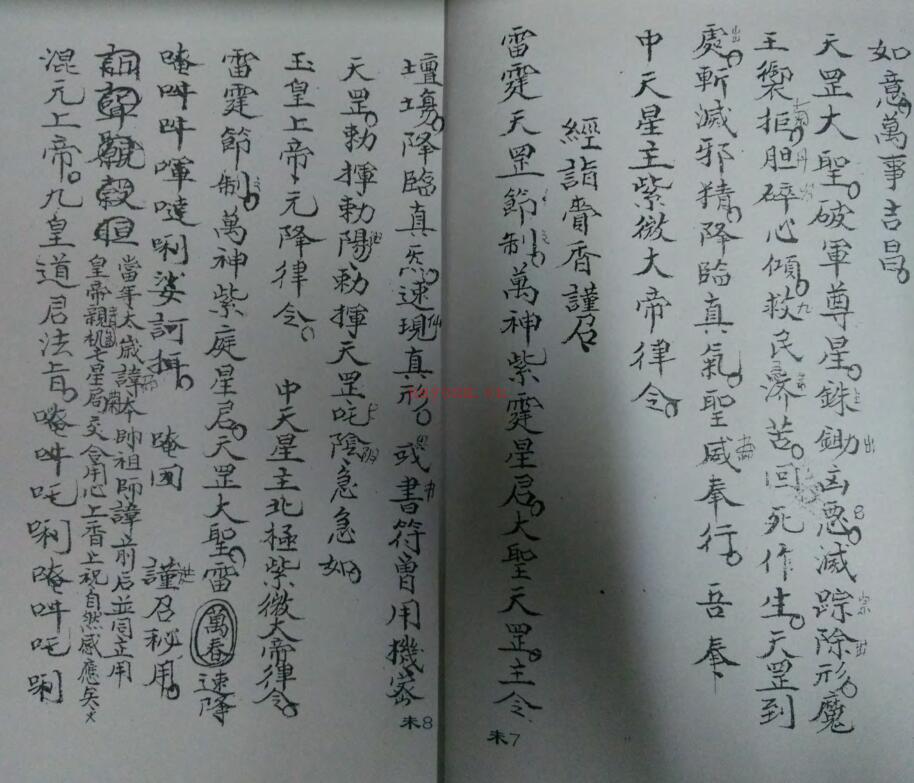 如意萬事吉昌
天罡大聖破軍尊星銖鋤凶惡滅踪除形魔
王禦拒胆碎心傾救民濟苦回死作生天罡到
處斬滅邪精降臨真氣聖威奉行吾奉
中天星主紫微大帝律令
經詣賫香謹召
雷霆天罡節制萬神紫霆星君大聖天罡主令
未7
壇場降臨真炁速現真形或書符曾用機密
天罡勅揮勅陽勅揮天罡吒陰急急如
玉皇上帝元降律令 中天星主北極紫微大帝律令
雷霆節制萬神紫庭星君天罡大聖雷萬春速降
唵吽吽㖇噠唎娑訶 唵 謹召秘用
當年太歲諱本師祖師諱前后並同立用
皇帝親机七星局交合用心上香上祝自然感應矣
混元上帝九皇道君法旨唵吽吒唎唵吽吒唎
未8